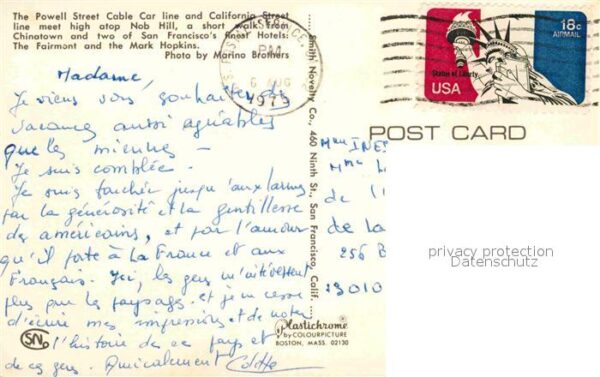 The Powell Street Cable Car line and California Street
line meet high atop Nob Hill, a short walk from
Chinatown and two of San Francisco's finest Hotels:
The Fairmont and the Mark Hopkins.
Photo by Marino Brothers
Madame,
Je viens vous souhaiter des
vacances aussi agréables
que les miennes –
Je suis comblée.
Je suis touchée jusqu'aux larmes
par la générosité et la gentillesse
des américains, et par l'amour
qu'il porte à la France et aux
Français. Ici, les gens m'intéressent
plus que les paysages et je ne cesse
d'écrire mes impressions et de noter
l'histoire de ce pays et
de ces gens. Amicalement Colette
SN
Smith Novelty Co., 460 Ninth St., San Francisco, Calif.
Plastichrome®
by COLOURPICTURE
BOSTON, MASS. 02130
PM
6 AUG
1975
Statue of Liberty
USA
18c
AIRMAIL
POST CARD
de l'
de la
256 B
privacy protection
Datenschutz